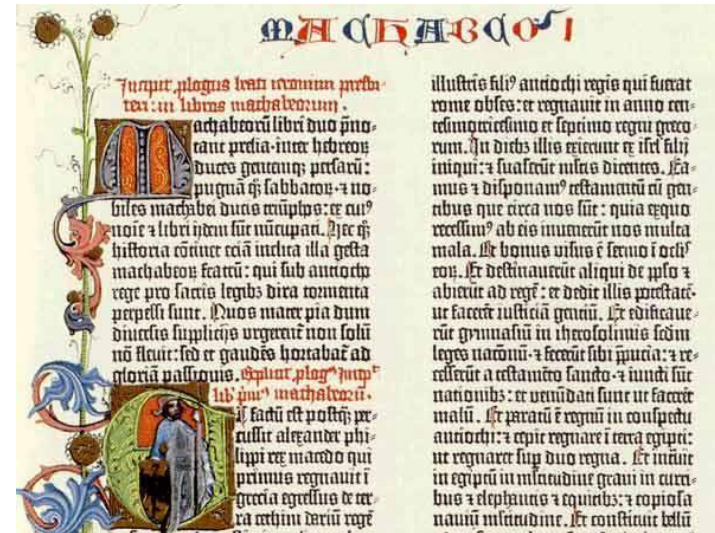 MACHABEO I
Incipit plogus beati ieronimi presbi-
teri in libros machabeorum.
Machabeorū libri duo p̄no-
tant prelia inter hebreorum
duces gentemqꝫ persarū:
pugnā qꝫ sabbatoꝝ ⁊ no-
biles machabei ducis triūphos: ex cuiꝰ
noīe ⁊ libri ijdem sūt nūcupati. Hec qꝫ
historia cōtinet eciā inclita illa gesta
machabeoꝝ fratrū: qui sub antiocho
rege pro sacris legibꝫ dira tormenta
perpessi sunt. Quos mater pia dum
diversis supplicijs urgerent̄ non solū
nō flevit: sed et gaudēs hortabat̄ ad
gloriā passionis. Explicit plogꝰ Incipt
lib' pm̄ꝰ machabeorū.
Et factū est postqꝫ per-
cussit alexander phi-
lippi rex macedo qui
primus regnavit ī
grecia egressus de ter-
ra cethim dariū regē
illustris filiꝰ antiochi regis qui fuerat
rome obses: et regnauit in anno cen-
tesimotricesimo et septimo regni greco-
rum. In diebꝫ illis exierunt ex isrl filij
iniqui: ⁊ suaserūt multis dicentes. Ea-
mus ⁊ disponamꝰ testamentū cū gen-
tibus que circa nos sūt: quia exquo
recessimꝰ ab eis invenerūt nos multa
mala. Et bonus visus ē sermo ī oclis
eoꝝ. Et destinauerūt aliqui de pplo ⁊
abierūt ad regē: et dedit illis potestatē
ut facerēt iusticiā genciū. Et edificaue-
rūt gymnasiū in iherosolimis scdm
leges nacōnū: ⁊ fecerūt sibi p̄pucia: ⁊ re-
cesserūt a testamēto sancto: ⁊ iuncti sūt
nationibꝫ: et venūdati sunt ut facerēt
malū. Et paratū ē regnū in conspectu
antiochi: ⁊ cepit regnare ī terra egipti:
ut regnaret sup duo regna. Et intrauit
in egiptū in mltitudine graui in curri-
bus ⁊ elephantis ⁊ equitibꝫ: ⁊ copiosa
nauiū mltitudine. Et constituit bellū